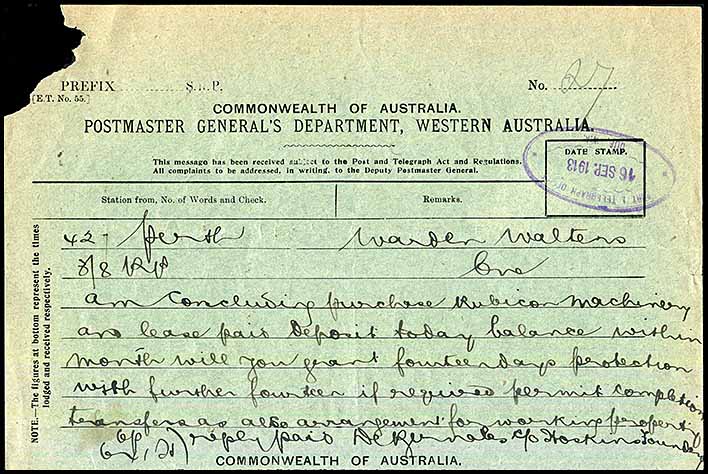 PREFIX S.R.P. No. 27
[E.T. No. 55.]
COMMONWEALTH OF AUSTRALIA.
POSTMASTER GENERAL'S DEPARTMENT, WESTERN AUSTRALIA.
This message has been received subject to the Post and Telegraph Act and Regulations.
All complaints to be addressed, in writing, to the Deputy Postmaster General.
DATE STAMP.
16 SEP. 1913
Station from, No. of Words and Check. Remarks.
NOTE.—The figures at bottom represent the times
lodged and received respectively.
42 Perth Warden Walters
Cue
am concluding purchase Rubicon machinery
and lease paid deposit today balance within
month will you grant fourteen days protection
with further fourteen if required permit completion
transfers as also arrangement for working property
reply paid c/o Hoskins Foundry
COMMONWEALTH OF AUSTRALIA.